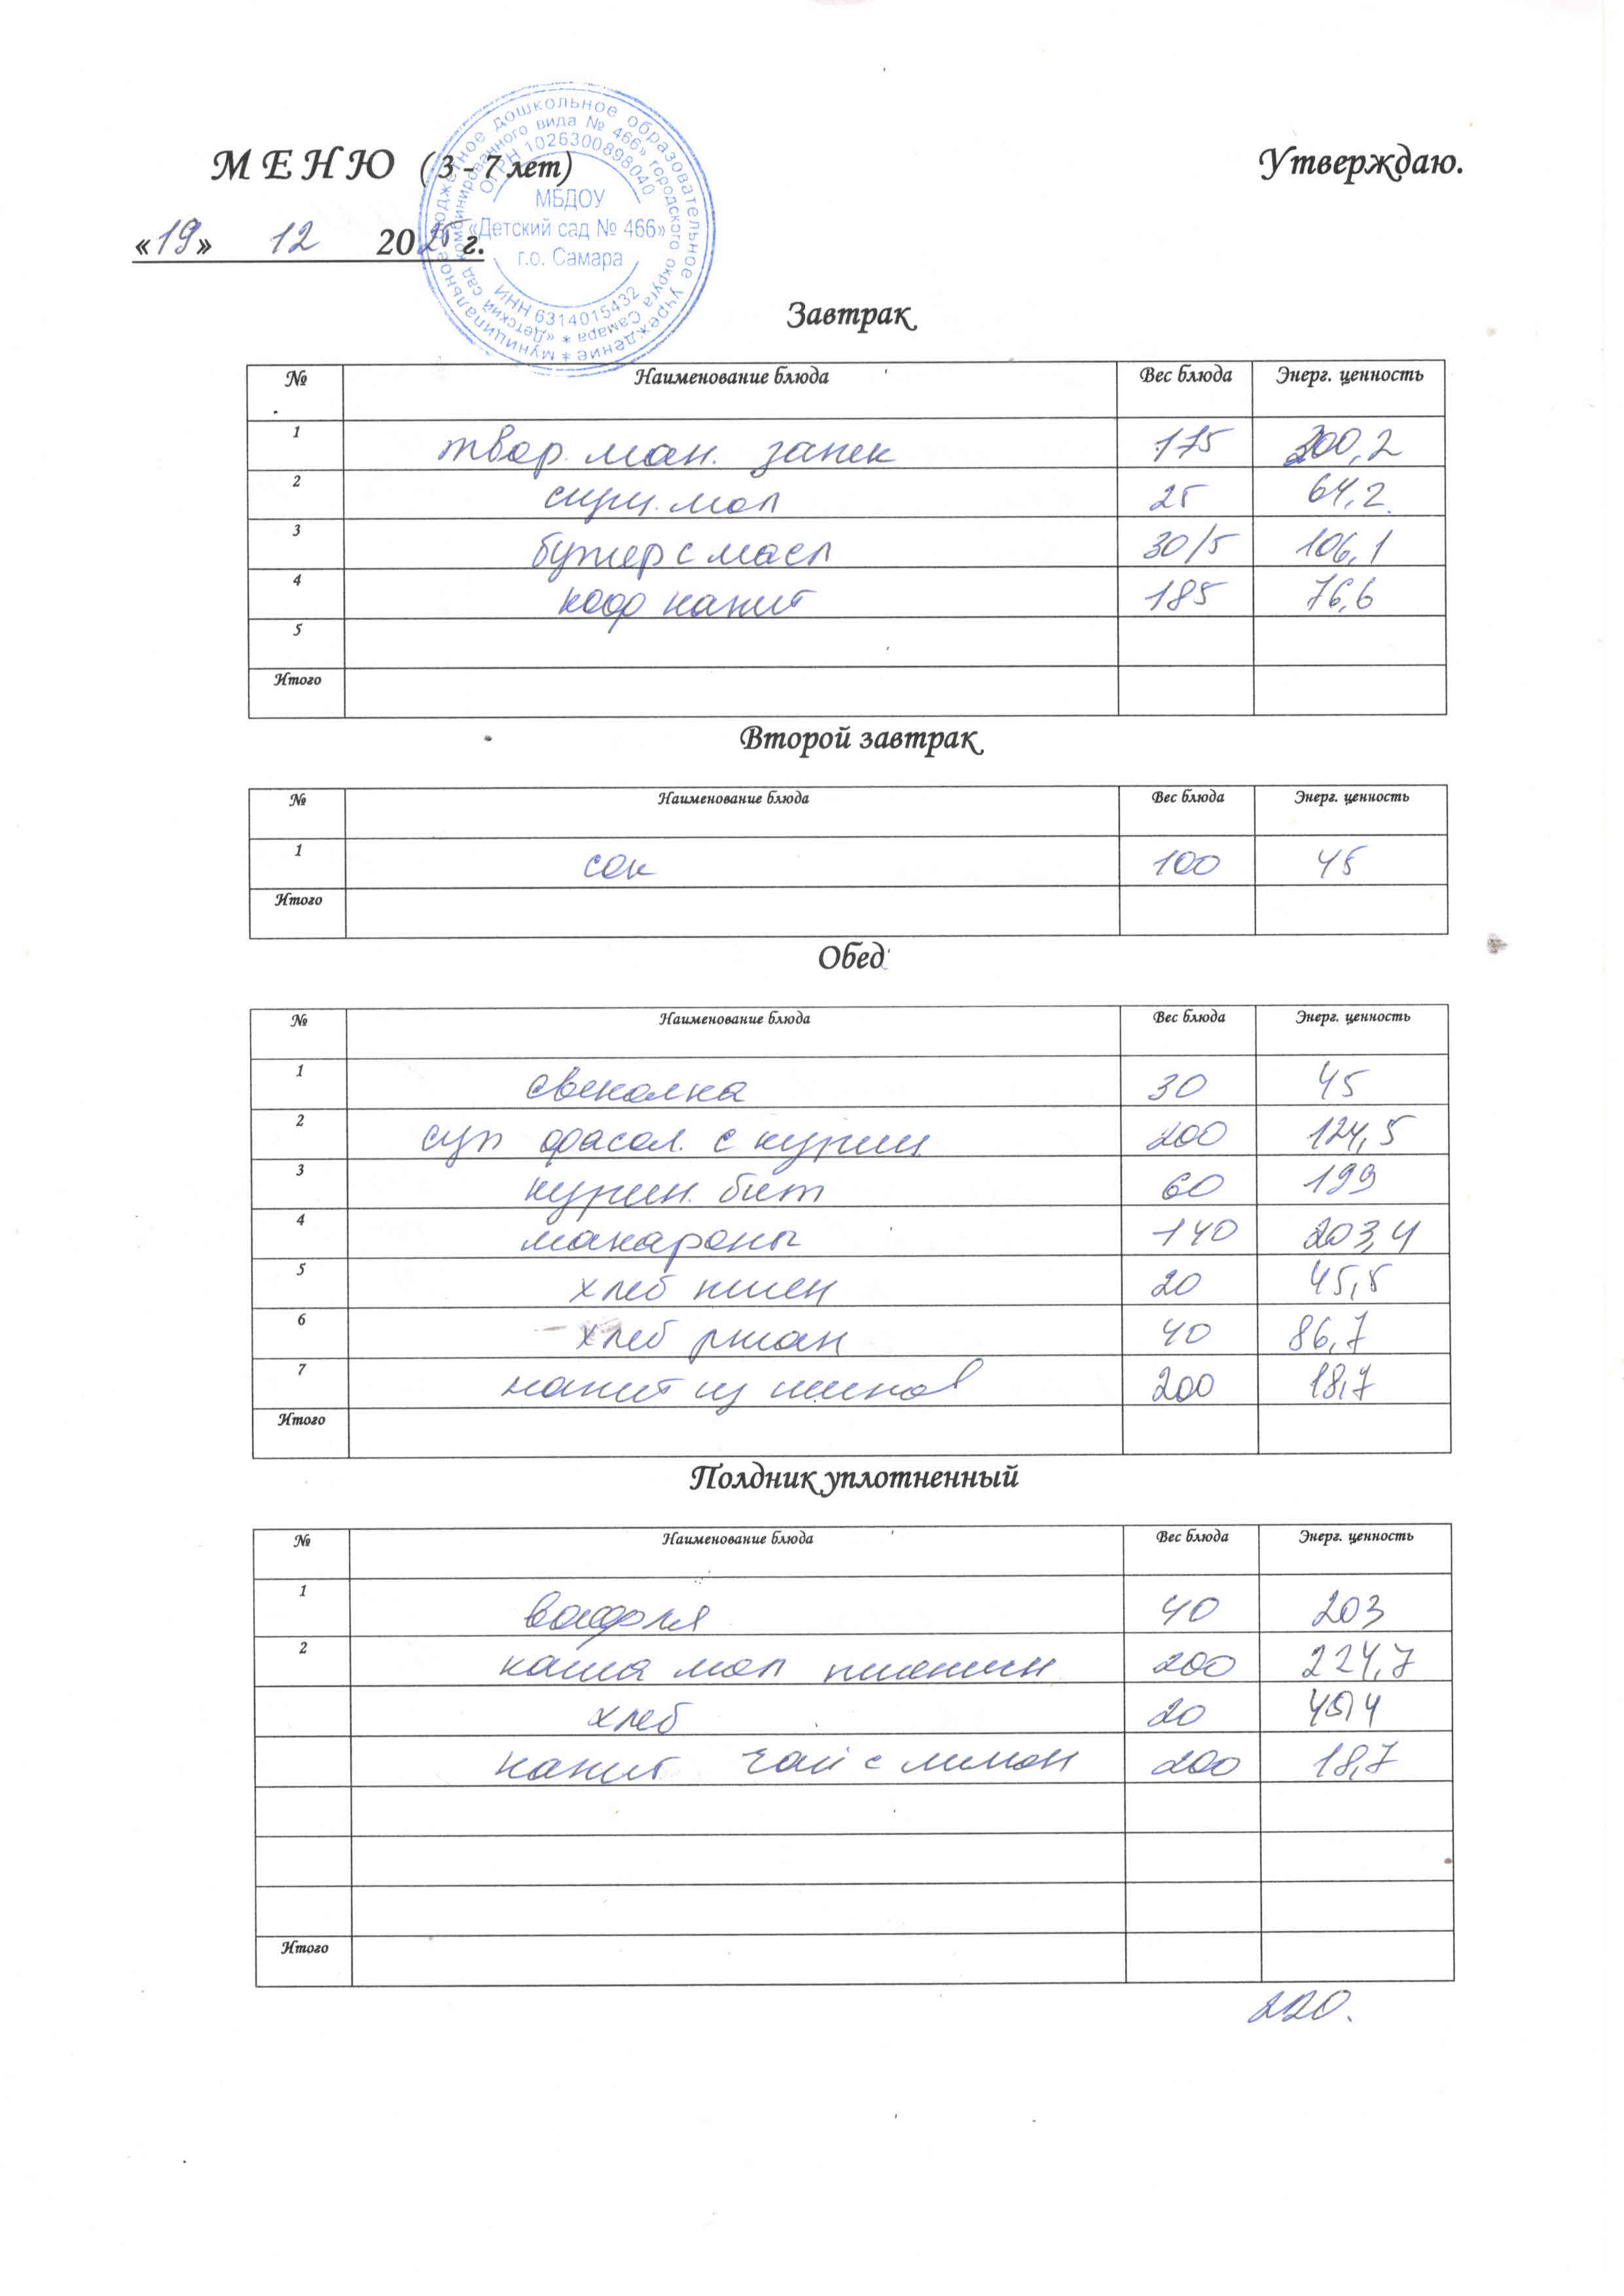 МЕНЮ (3 - 7 лет) Утверждаю.
«19» 12 2025 г.
муниципальное бюджетное дошкольное образовательное учреждение *
«Детский сад комбинированного вида № 466» городского округа Самара *
ОГРН 1026300898040
МБДОУ
«Детский сад № 466»
г.о. Самара
ИНН 6314015432
Завтрак
№ Наименование блюда Вес блюда Энерг. ценность
1 твор. ман. запек 175 200,2
2 сгущ. мол 25 64,2
3 бутер с масл 30/5 106,1
4 коф напит 185 76,6
5
Итого
Второй завтрак
№ Наименование блюда Вес блюда Энерг. ценность
1 сок 100 45
Итого
Обед
№ Наименование блюда Вес блюда Энерг. ценность
1 свеколка 30 45
2 суп фасол. с куриц 200 124,5
3 курин. бит 60 199
4 макароны 140 203,4
5 хлеб пшен 20 45,8
6 хлеб ржан 40 86,7
7 напит из шипов 200 18,7
Итого
Полдник уплотненный
№ Наименование блюда Вес блюда Энерг. ценность
1 вафля 40 203
2 каша мол пшенич 200 224,7
хлеб 20
напит чай с лимон 200 18,7
Итого
220.